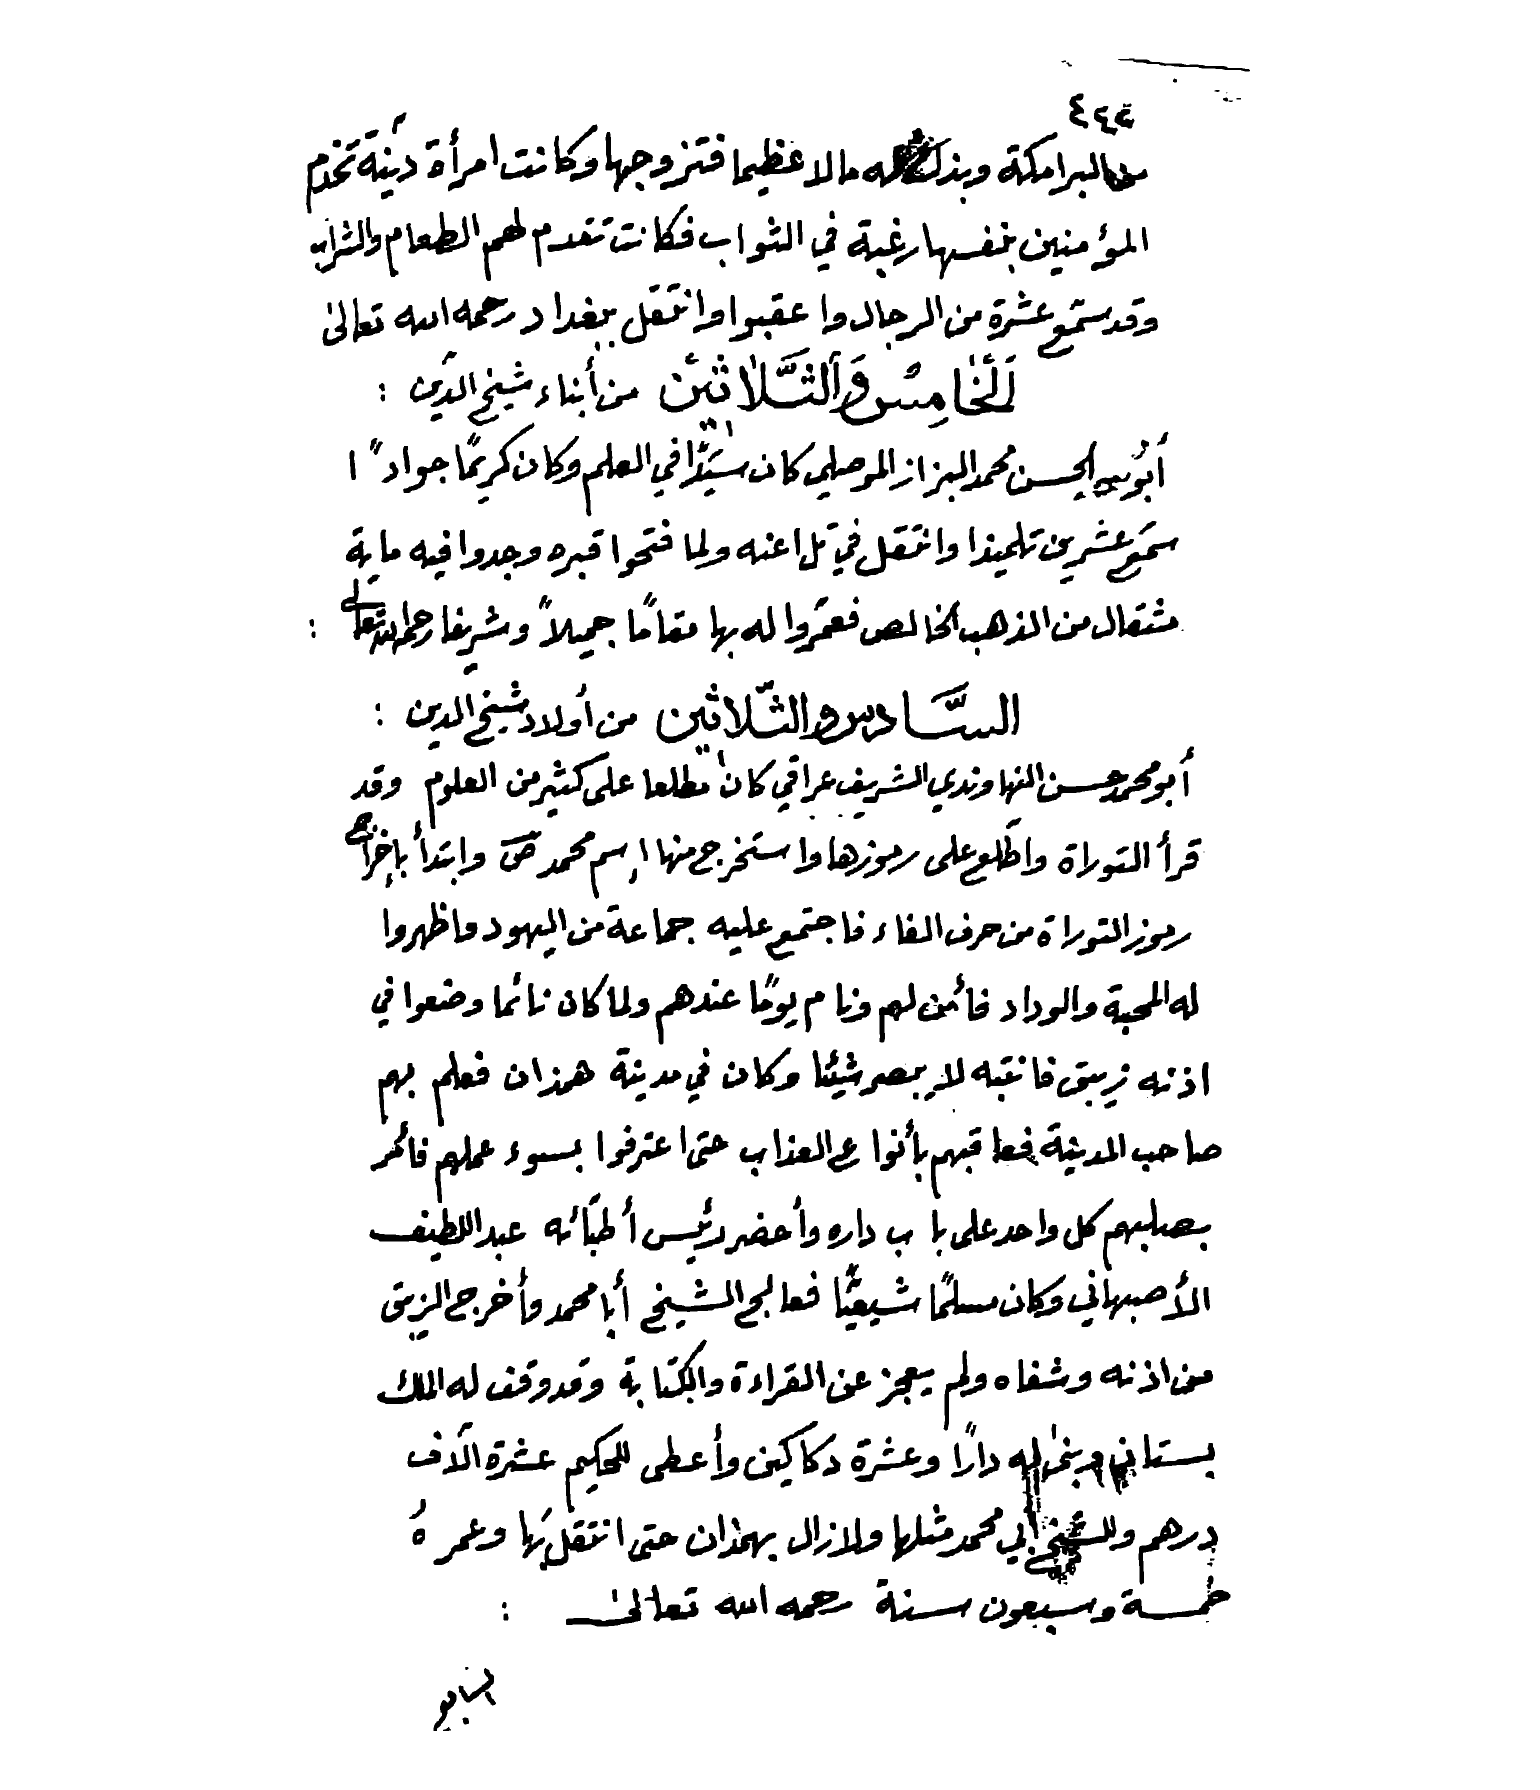 ٤٤٢
من البرامكة وبذل له مالا عظيما فتزوجها وكانت امرأة دينة تخدم
المؤمنين بنفسها رغبة في الثواب فكانت تقدم لهم الطعام والشراب
وقد سمع عشرة من الرجال واعقبوا وانتقل ببغداد رحمه الله تعالى
اَلْخَامِسُ وَالثَّلاثين من أبناء شيخ الدين :
أبو الحسن محمد البزاز الموصلي كان سيدًا في العلم وكان كريمًا جوادًا
سمع عشرين تلميذا وانتقل في تل اعنه ولما فتحوا قبره وجدوا فيه ماية
مثقال من الذهب الخالص فعمروا له بها مقامًا جميلاً وشريفا رحمه الله تعالى :
السَّادس والثّلاثين من أولاد شيخ الدين :
أبو محمد حسن النهاوندي الشريف عراقي كان مطلعا على كثير من العلوم وقد
قرأ التوراة واطّلع على رموزها واستخرج منها إسم محمد ص وابتدأ بإخراج
رموز التوراة من حرف الفاء فاجتمع عليه جماعة من اليهود فاظهروا
له المحبة والوداد فأمن لهم ونام يومًا عندهم ولما كان نائما وضعوا في
اذنه زيبق فانتبه لا يبصر شيئا وكان في مدينة همذان فعلم بهم
صاحب المدينة فعاقبهم بأنواع العذاب حتى اعترفوا بسوء عملهم فأمر
بصلبهم كل واحد على باب داره وأحضر رئيس أطبّائه عبد اللطيف
الأصبهاني وكان مسلمًا شيعيًّا فعالج الشيخ أبا محمد وأخرج الزيبق
من اذنه وشفاه ولم يعجز عن القراءة والكتابة وقد وقف له الملك
بستاني وبنى له دارًا وعشرة دكاكين وأعطى للحكيم عشرة آلاف
درهم وللشيخ أبي محمد مثلها ولا زال بهمذان حتى انتقل بها وعمره
خمسة وسبعون سنة رحمه الله تعالى :
السابع